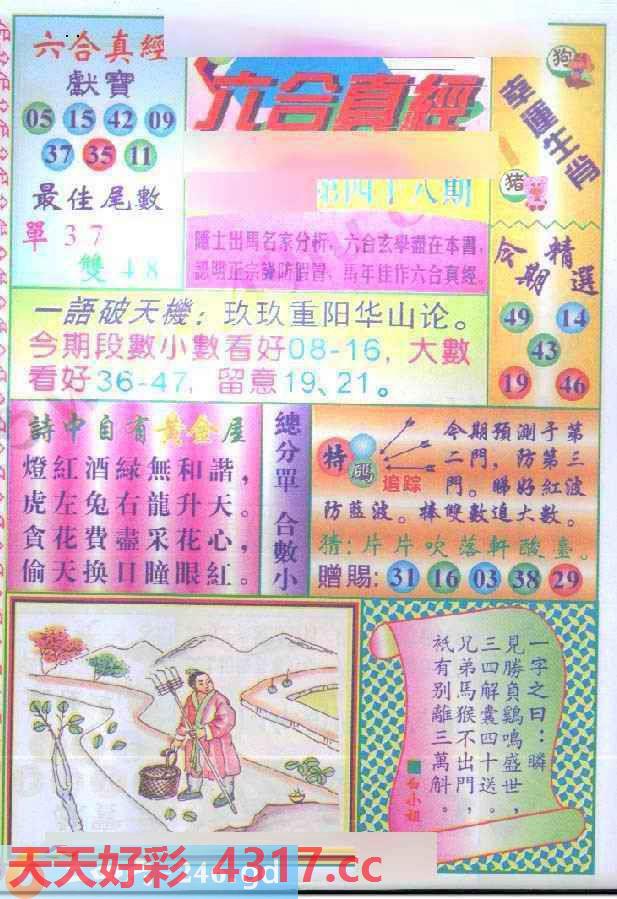 六合真經
獻寶
05 15 42 09
37 35 11
最佳尾數
單 3 7
雙 4 8
六合真經
第四十八期
隱士出馬名家分析，六合玄學盡在本書，
認明正宗謹防假冒，馬年佳作六合真經。
狗
幸運生肖
猪
今期精選
49 14
43
19 46
一語破天機：玖玖重阳华山论。
今期段數小數看好08-16，大數
看好36-47，留意19、21。
詩中自有黃金屋
燈紅酒綠無和諧，
虎左兔右龍升天。
貪花費盡采花心，
偷天換日瞳眼紅。
總分單 合數小
特碼
追踪
今期預測于第
二門，防第三
門。睇好紅波
防藍波。棒雙數追大數。
猜：片片吹落軒
贈賜：31 16 03 38 29
一字之曰：瞬
見勝負鷄鳴盛世，
三四解囊四十送。
兄弟馬猴不出門，
祇有別離三萬斛。
白小姐
天天好彩 4317.cc